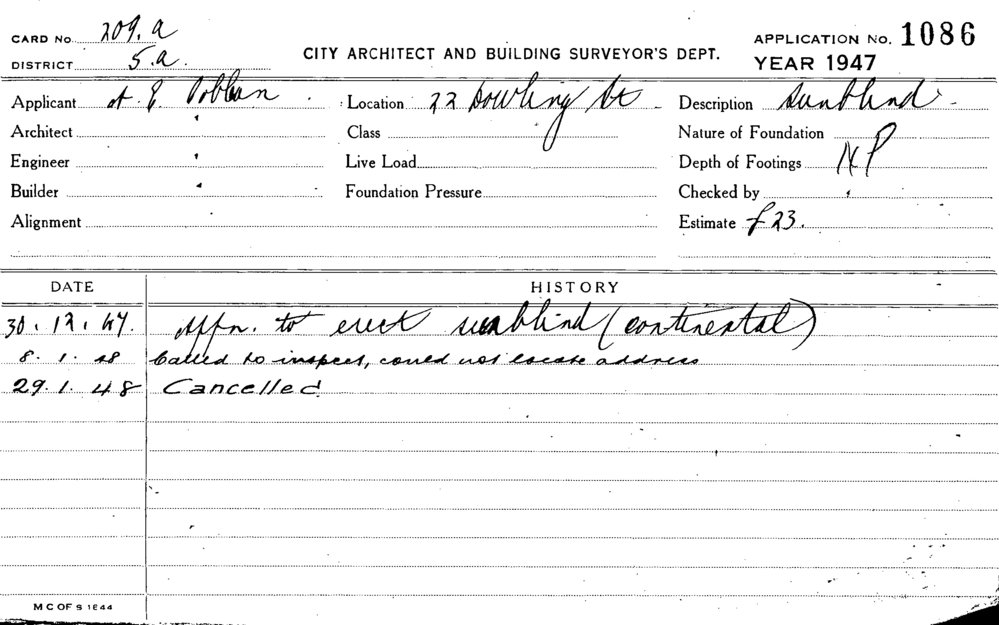 CARD No. 209.a
CITY ARCHITECT AND BUILDING SURVEYOR'S DEPT.
APPLICATION No. 1086
DISTRICT 5.a.
YEAR 1947
Applicant A. E. Location 22 Dowling St Description Sunblind
Architect Class Nature of Foundation
Engineer Live Load Depth of Footings
Builder Foundation Pressure Checked by
Alignment Estimate £23.
DATE HISTORY
30.12.47. Appn. to erect sunblind (continental)
8.1.48 Called to inspect, could not locate address
29.1.48 Cancelled
M C OF S 1644